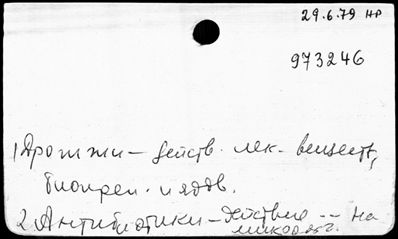 29.6.79 НР
973246
1) Дрожжи – действ. лек. веществ,
биопреп. и ядов.
2. Антибиотики – действие -- на
микроорг.